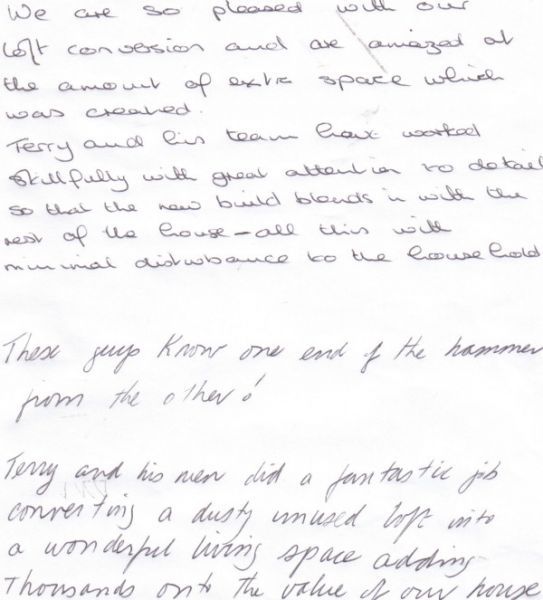 We are so pleased with our
loft conversion and are amazed at
the amount of extra space which
was created.
Terry and his team have worked
skillfully with great attention to detail
so that the new build blends in with the
rest of the house - all this with
minimal disturbance to the household
These guys know one end of the hammer
from the other!
Terry and his men did a fantastic job
converting a dusty unused loft into
a wonderful living space adding
Thousands onto the value of our house